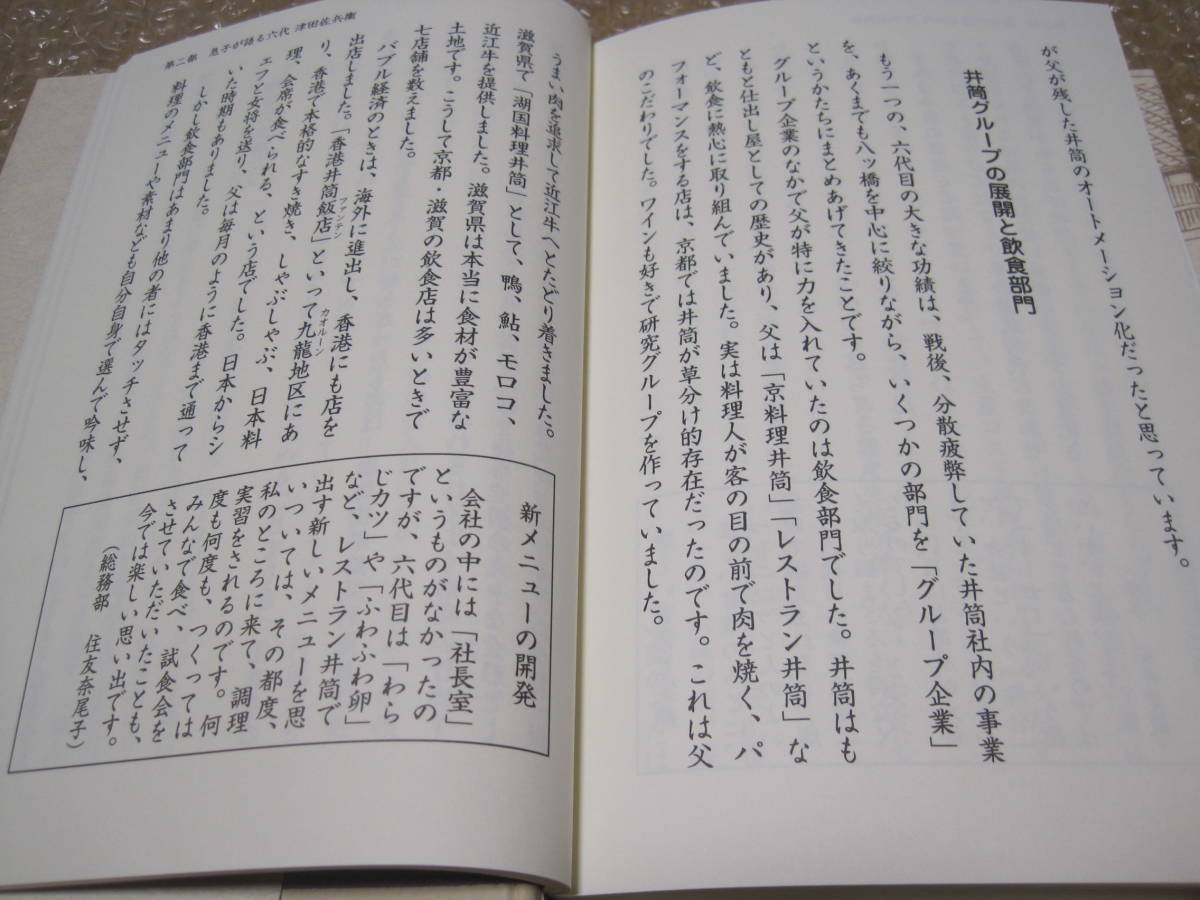 が父が残した井筒のオートメーション化だったと思っています。
井筒グループの展開と飲食部門
もう一つの、六代目の大きな功績は、戦後、分散疲弊していた井筒社内の事業
を、あくまでも八ッ橋を中心に絞りながら、いくつかの部門を「グループ企業」
というかたちにまとめあげてきたことです。
グループ企業のなかで父が特に力を入れていたのは飲食部門でした。井筒はも
ともと仕出し屋としての歴史があり、父は「京料理井筒」「レストラン井筒」な
ど、飲食に熱心に取り組んでいました。実は料理人が客の目の前で肉を焼く、パ
フォーマンスをする店は、京都では井筒が草分け的存在だったのです。これは父
のこだわりでした。ワインも好きで研究グループを作っていました。
うまい肉を追求して近江牛へとたどり着きました。
滋賀県で「湖国料理井筒」として、鴨、鮎、モロコ、
近江牛を提供しました。滋賀県は本当に食材が豊富な
土地です。こうして京都・滋賀の飲食店は多いときで
七店舗を数えました。
バブル経済のときは、海外に進出し、香港にも店を
出店しました。「香港井筒飯店」といって九龍地区にあ
ファンテン
カオルーン
り、香港で本格的なすき焼き、しゃぶしゃぶ、日本料
理、会席が食べられる、という店でした。日本からシ
ェフと女将を送り、父は毎月のように香港まで通って
いた時期もありました。
しかし飲食部門はあまり他の者にはタッチさせず、
料理のメニューや素材なども自分自身で選んで吟味し、
新メニューの開発
会社の中には「社長室」
というものがなかったの
ですが、六代目は「わら
じカツ」や「ふわふわ卵」
など、レストラン井筒で
出す新しいメニューを思
いついては、その都度、
私のところに来て、調理
実習をされるのです。何
度も何度も、つくっては
みんなで食べ、試食会を
させていただいたことも、
今では楽しい思い出です。
(総務部 住友奈尾子)
第二部 息子が語る六代 津田佐兵衞